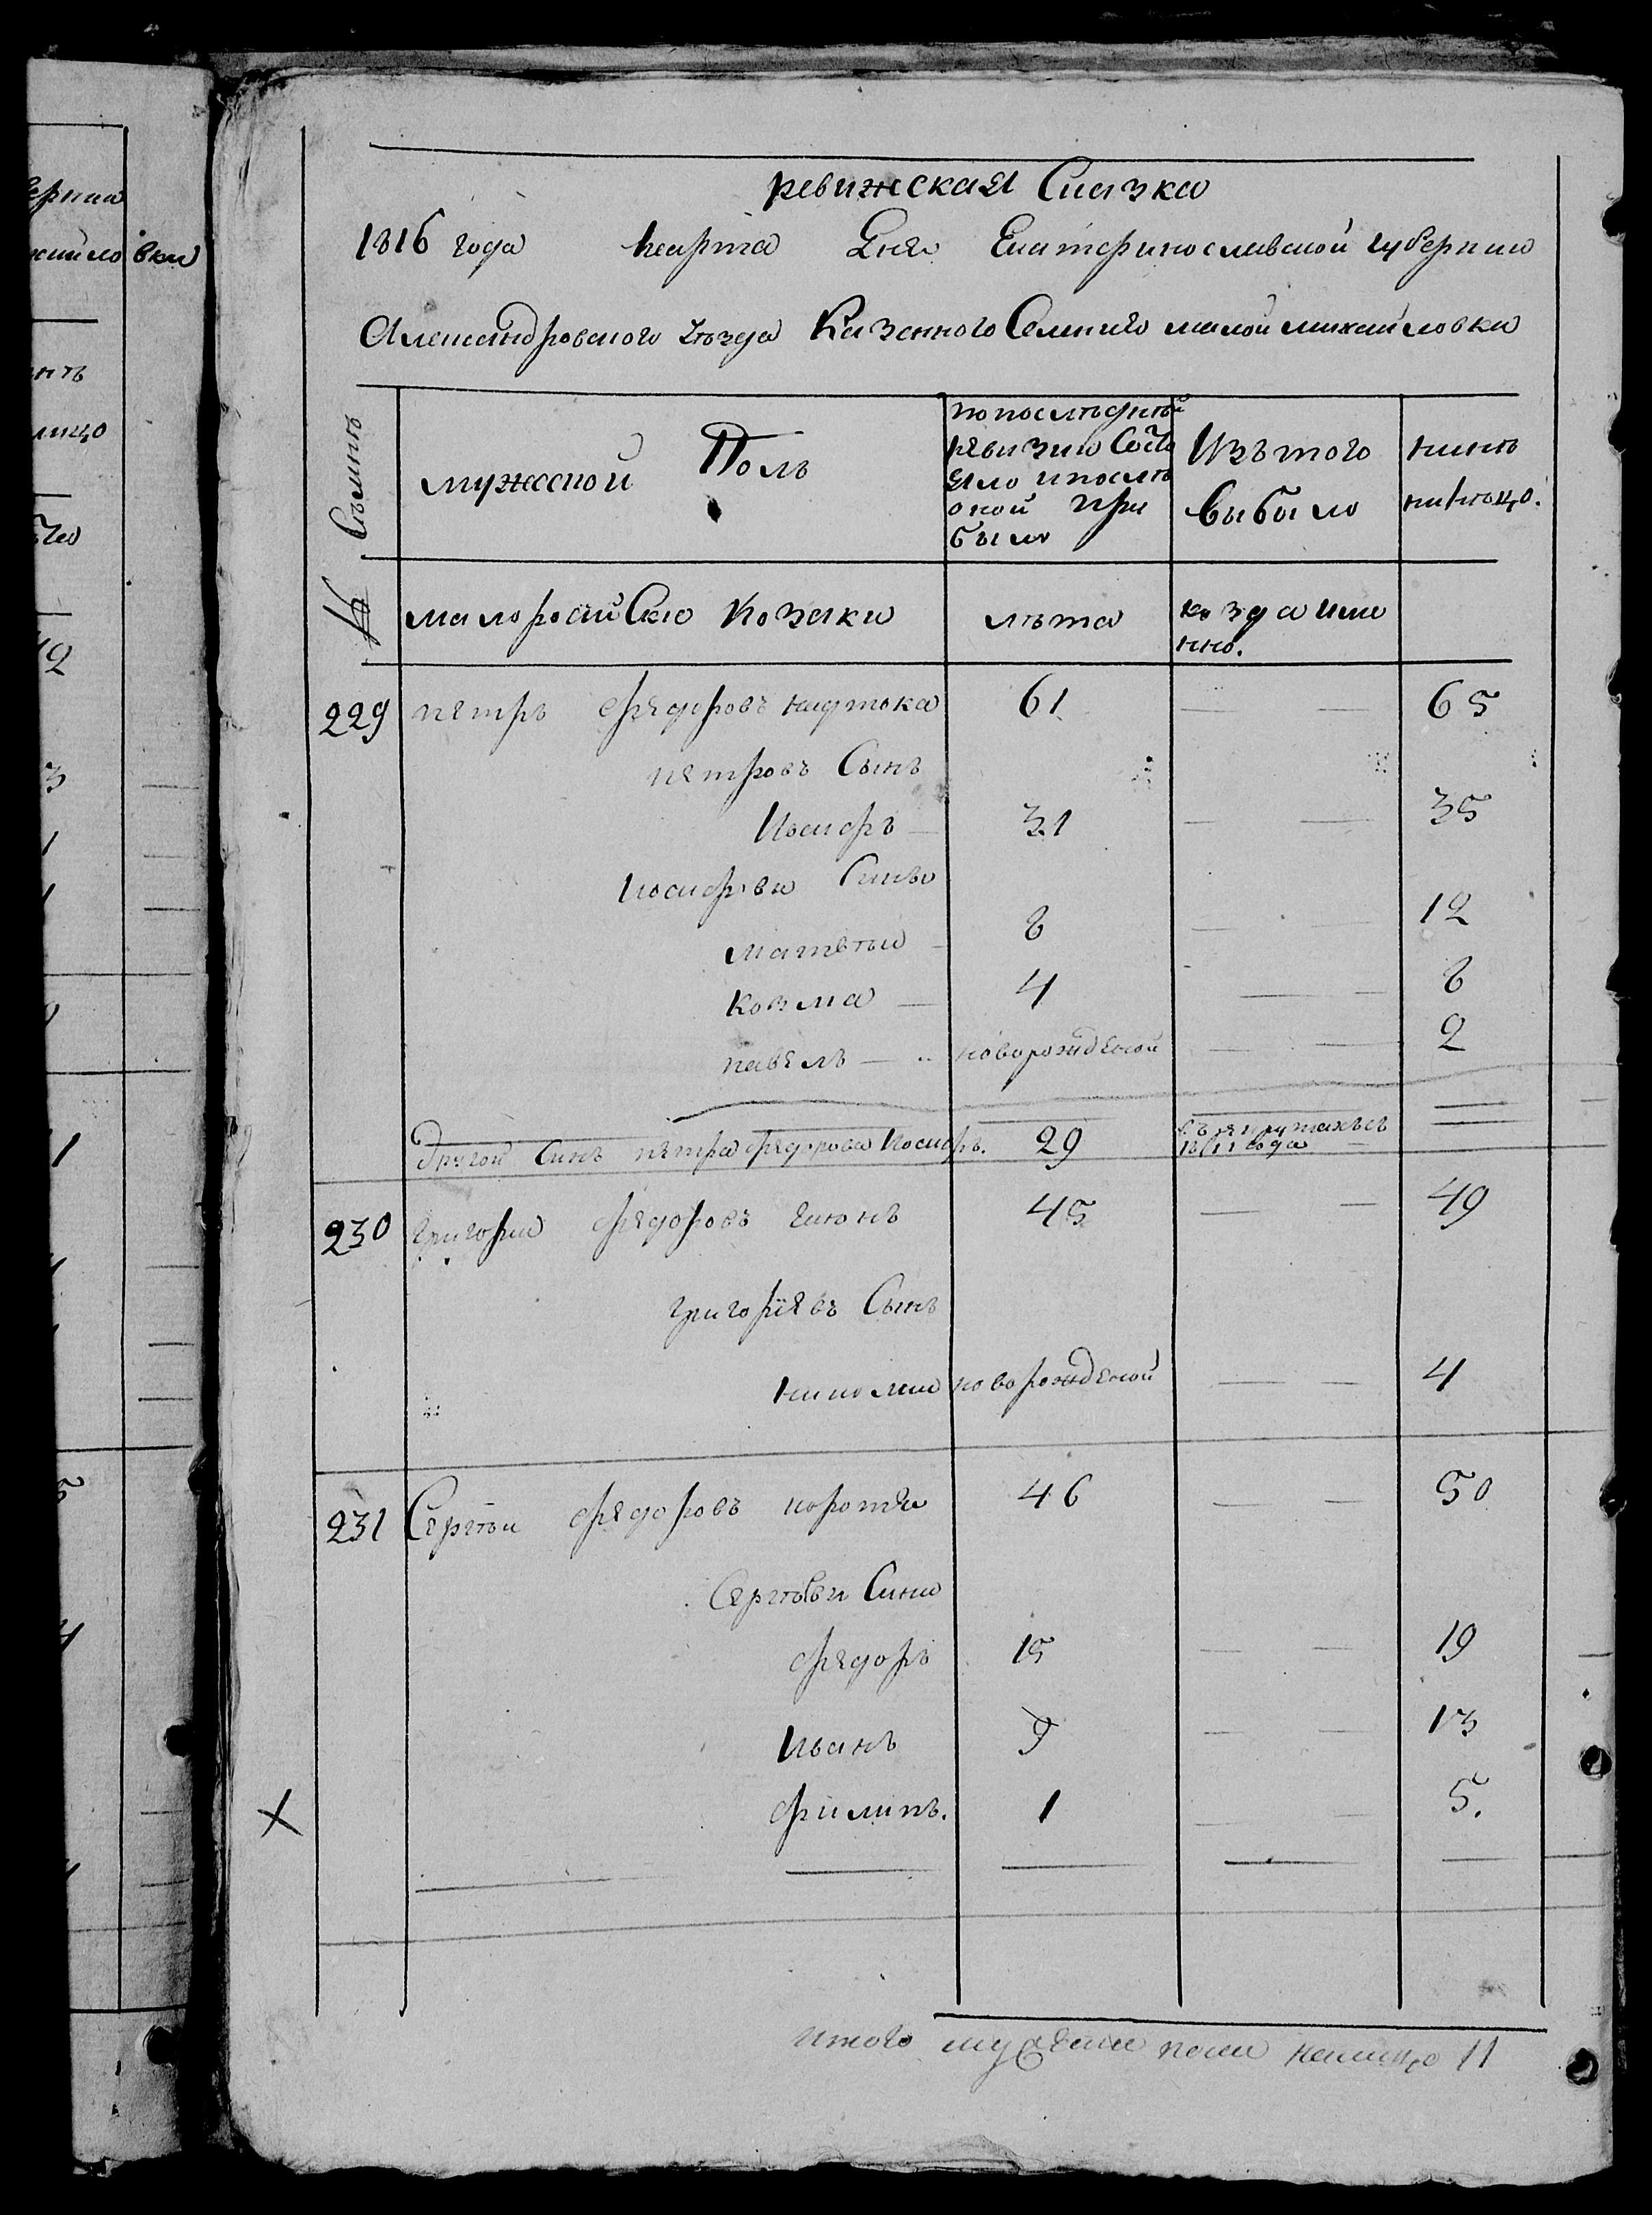 ревижская Сказка
1816 года марта дня Екатеринославской губернии
Александровского уѣзда Казенного Селения малой михайловки
Съмиіѣ
мужеской Полъ
по послѣдней
ревизии Состо
яло и послѣ
оной при
было
Изъ того
выбыло
нинѣ
на лицо.
№
малоросийСкіе козаки
лѣта
когда имя
нно.
229 петръ федоровъ 61 — — 65
петровъ Сынъ
Иосифъ — 31 — — 35
Иосифови Сини
матвѣй — 8 — — 12
козма — 4 — — 8
павелъ — новорожденой — — 2
Другой Синъ петра федорова Иосифъ. 29 въ рекрутахъ съ
1811 года
230 григорий федоровъ 45 — — 49
григориевъ Сынъ
николай новорожденой — — 4
231 Сергѣй федоровъ коротя 46 — — 50
Сергѣеви Сини
федоръ 15 — — 19
Иванъ 9 — — 13
филипъ. 1 — — 5.
итого мужеска пола налицо 11
ерния
хайло вки
нѣ
лицо
12
3
1
1
1
5
4